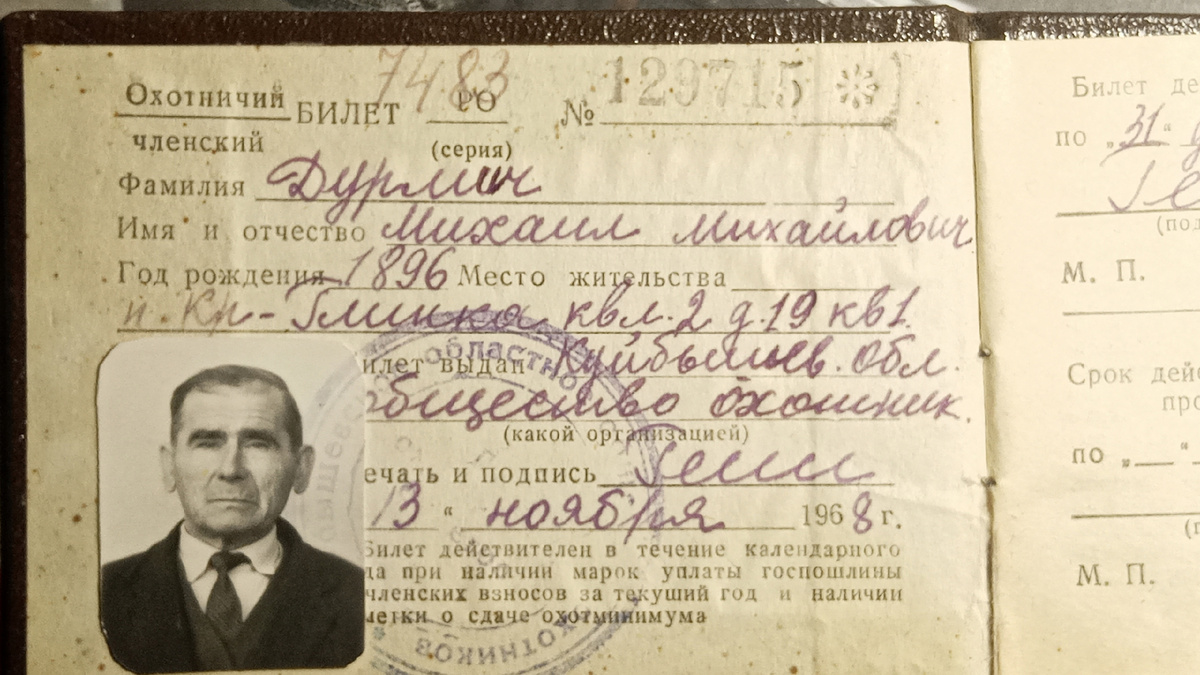 7483
Охотничий БИЛЕТ РО № 129715
членский (серия)
Фамилия Дурмин
Имя и отчество Михаил Михайлович
Год рождения 1896 Место жительства
п. Кр-Глинка квл. 2 д. 19 кв 1.
илет выдан Куйбышев. обл.
общество охотник.
(какой организацией)
ечать и подпись
13 " ноября 1968 г.
Билет действителен в течение календарного
да при наличии марок уплаты госпошлины
членских взносов за текущий год и наличии
метки о сдаче охотминимума
областно
охотников
Билет де
по „31"
(под
М. П.
Срок дейс
про
по „ "
М. П.